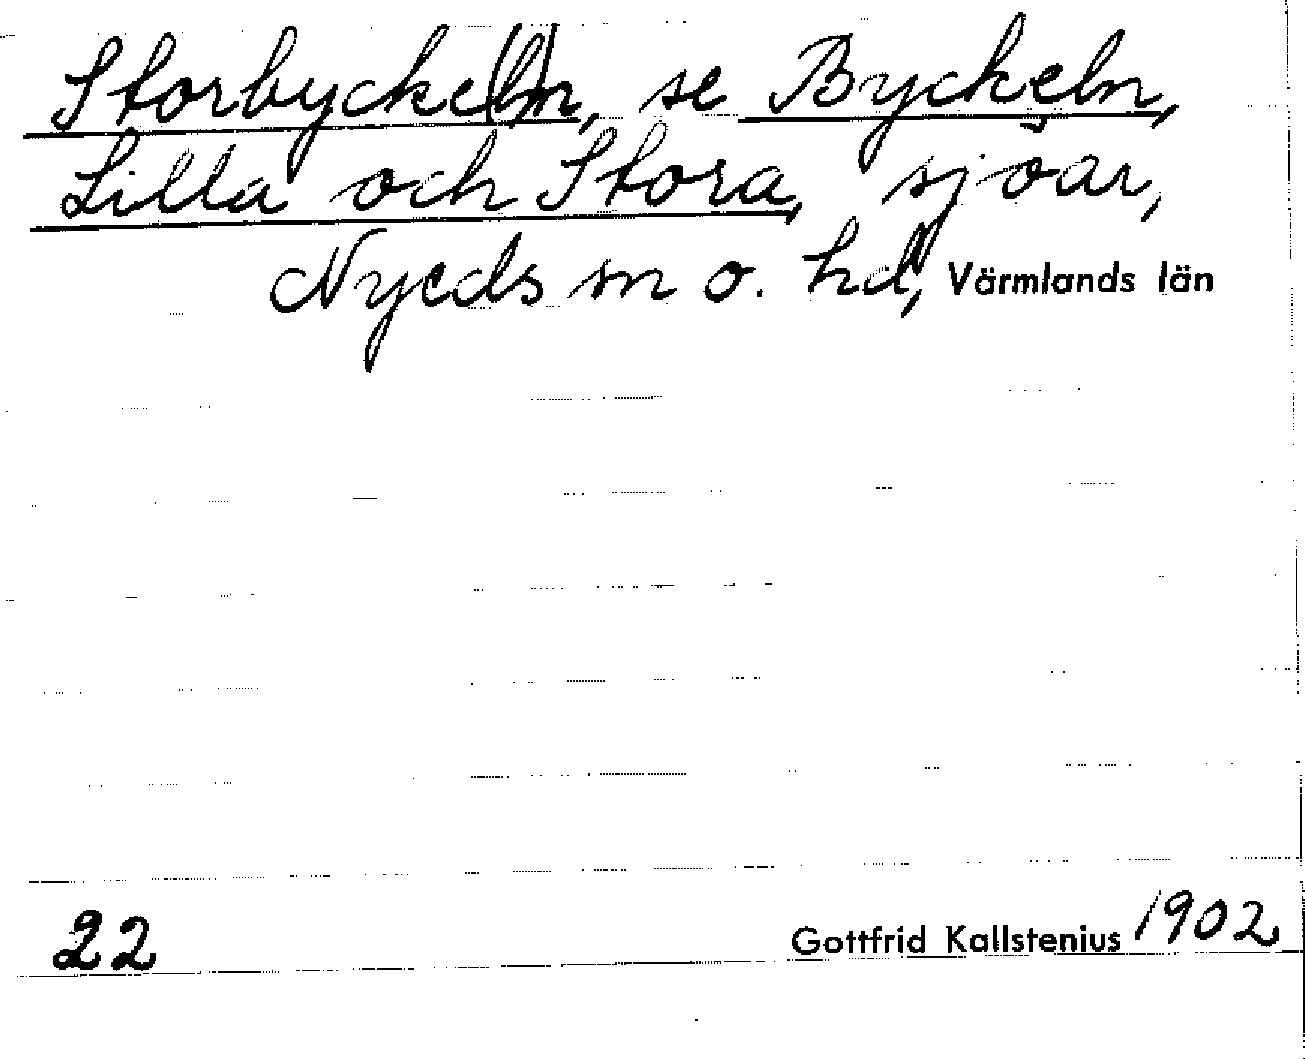 Storbycke(l)n, se Byckeln,
Lilla och Stora, sjöar,
Nyeds sn o. hd, Värmlands län
22 Gottfrid Kallstenius 1902